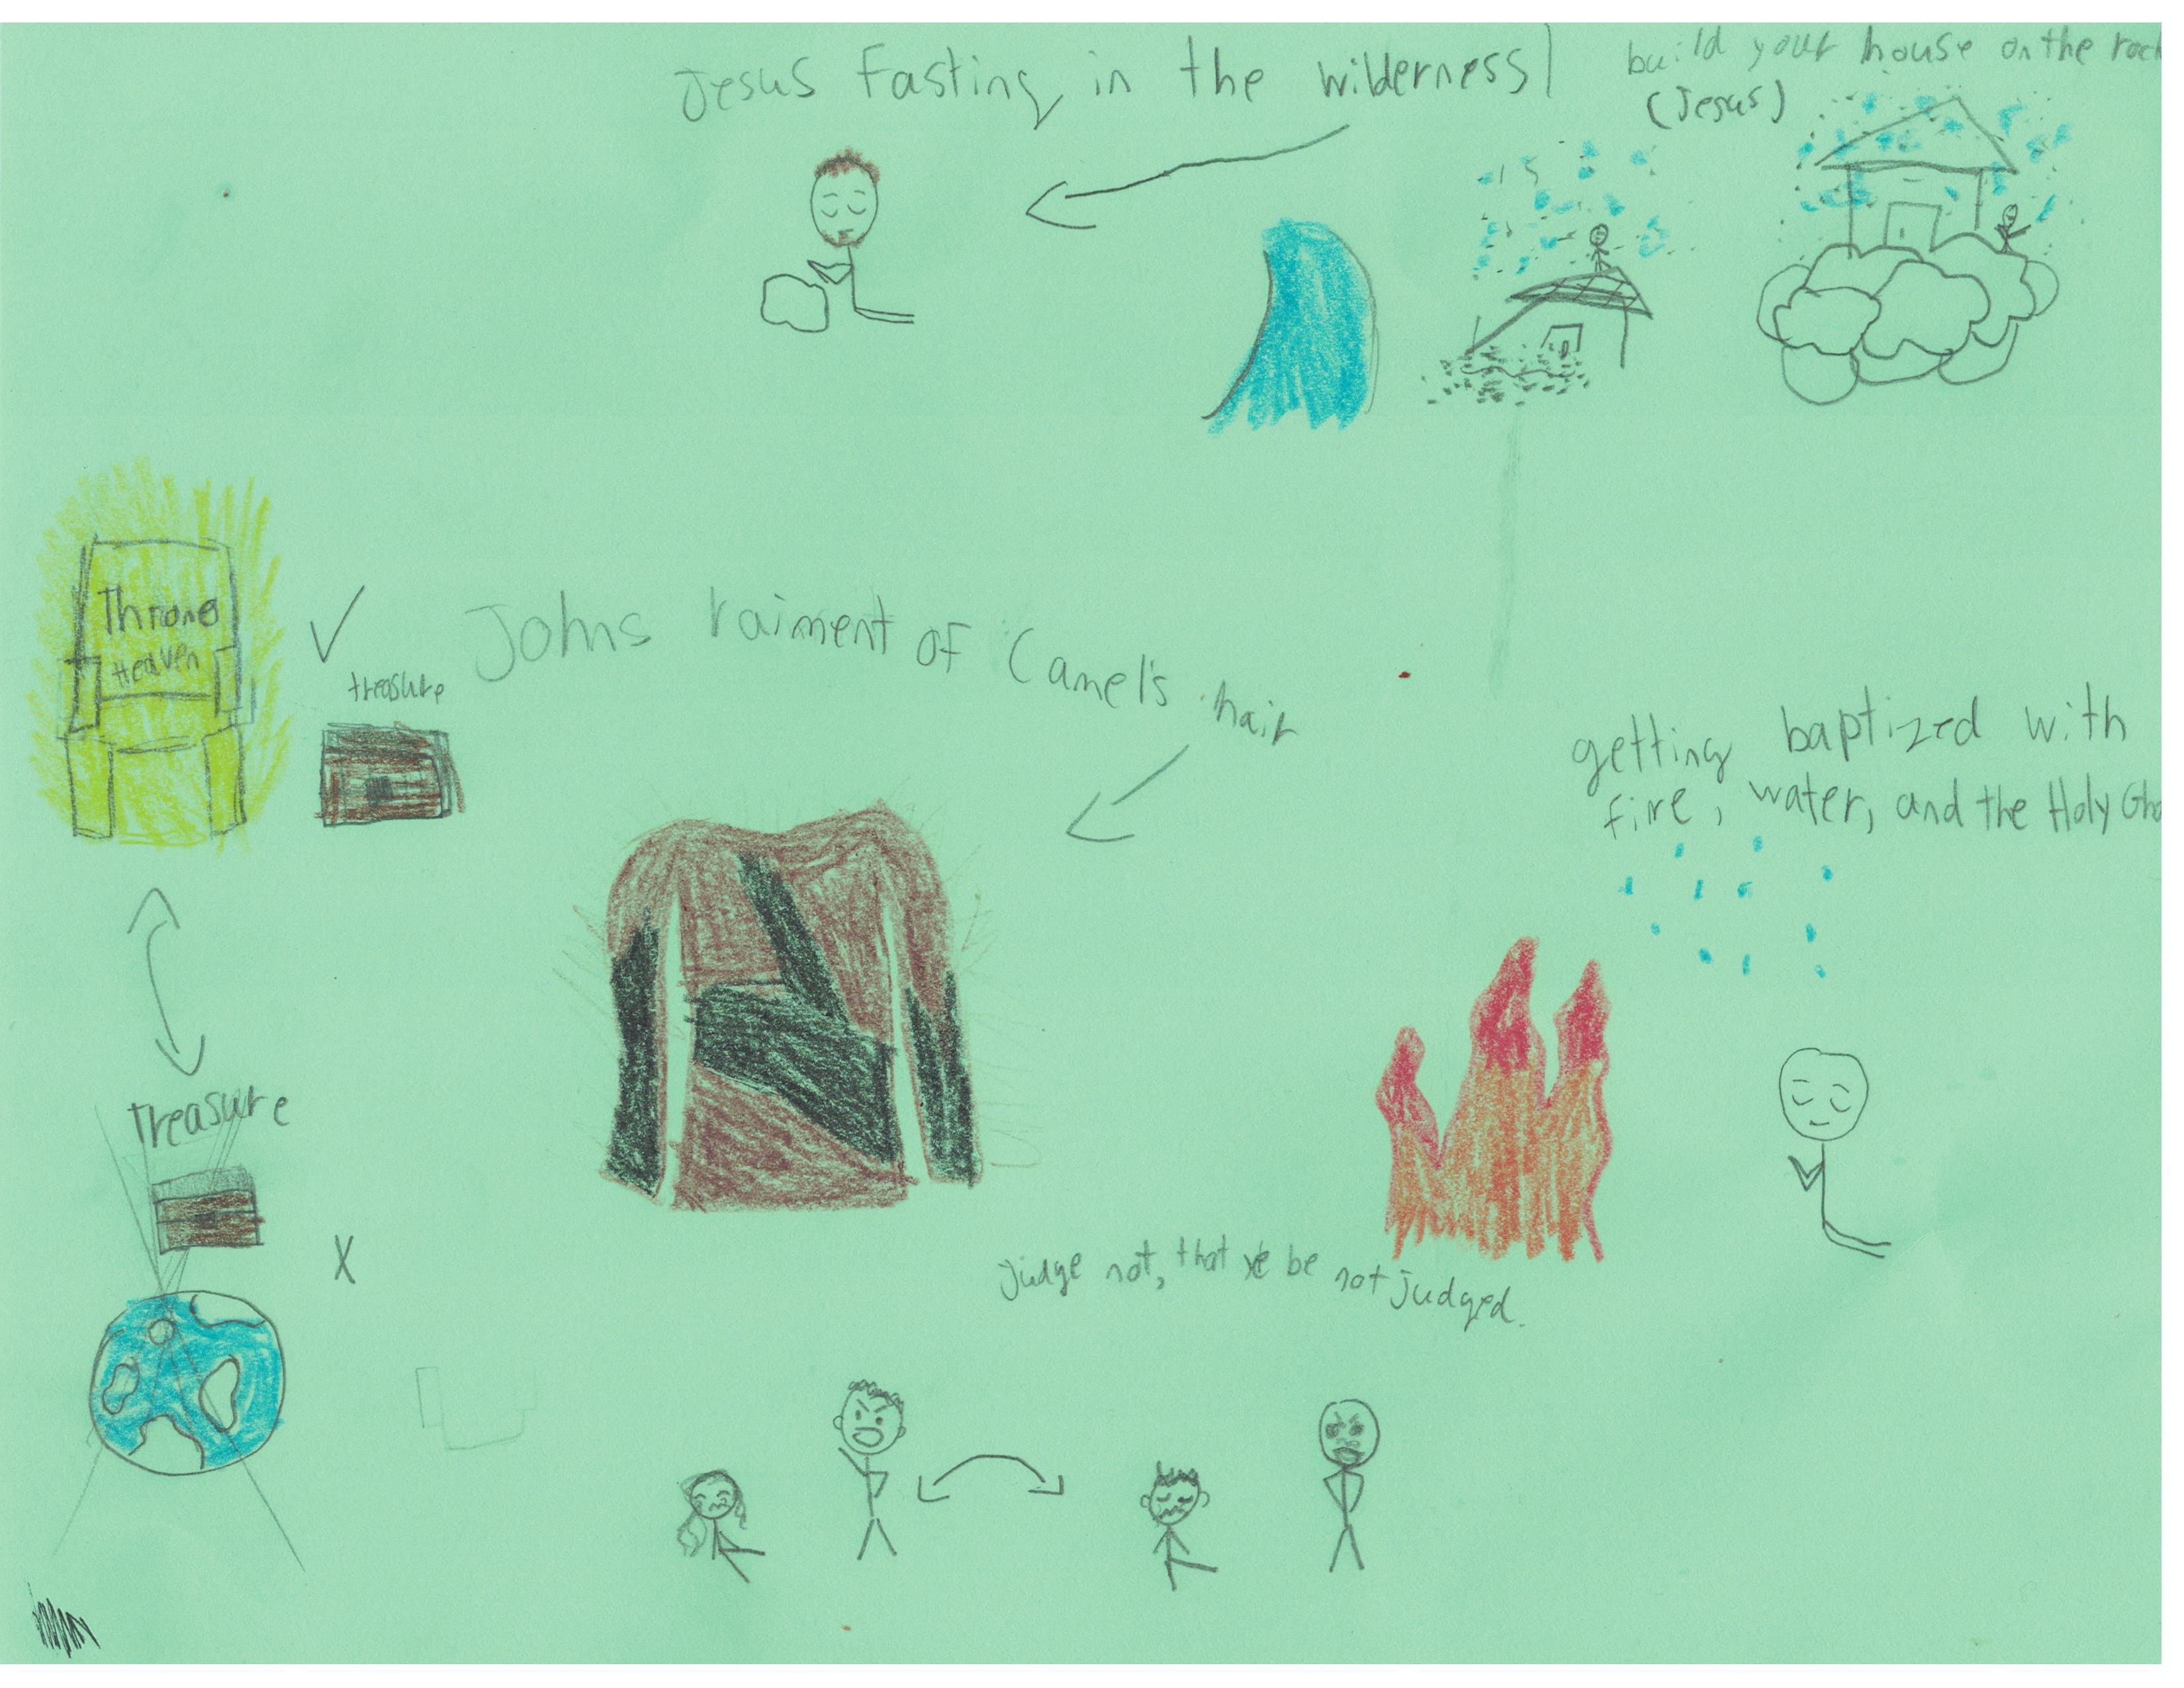 Jesus Fasting in the wilderness
build your house on the rock
(Jesus)
Throne
Heaven
treasure
Johns raiment of Camel's hair
getting baptized with
fire, water, and the Holy Gho
Treasure
X
judge not, that ye be not judged.